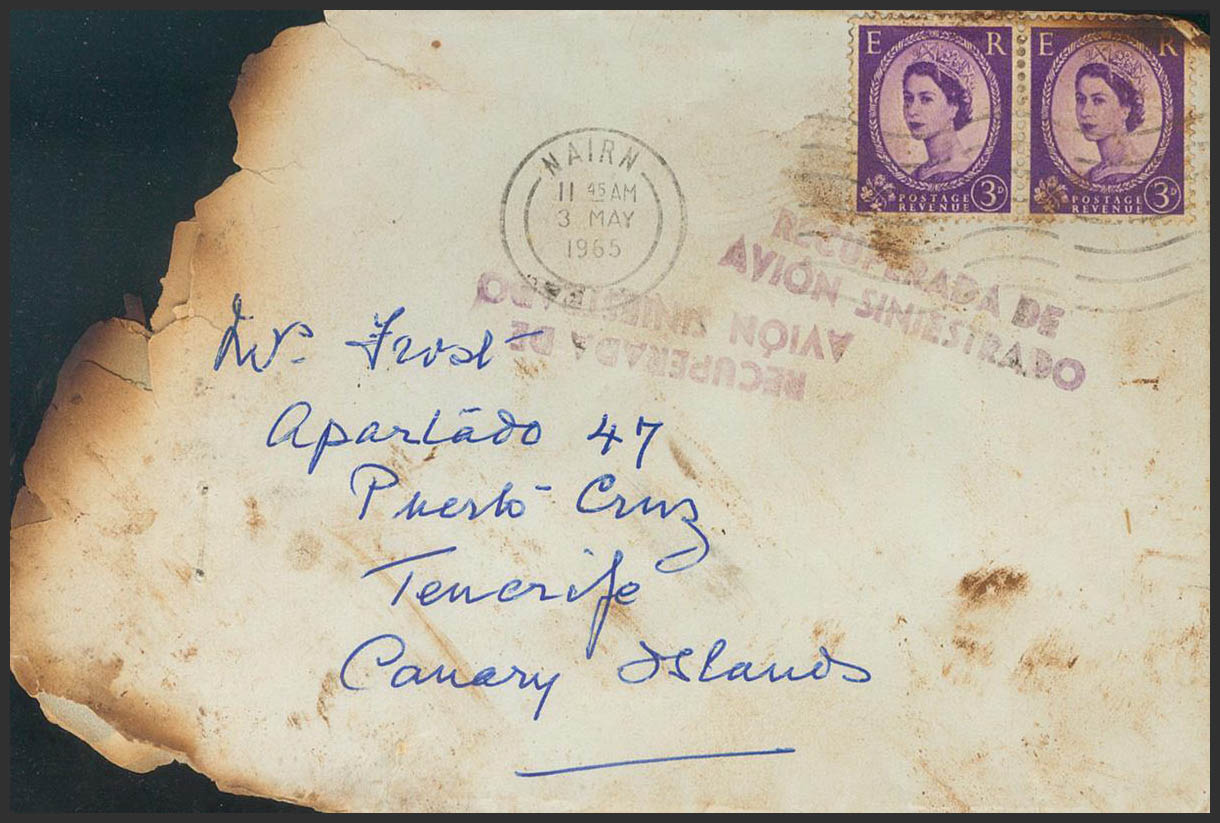 E R E R
POSTAGE REVENUE 3D POSTAGE REVENUE 3D
NAIRN
11 45 AM
3 MAY
1965
RECUPERADA DE
AVIÓN SINIESTRADO
RECUPERADA DE
AVIÓN SINIESTRADO
Mr. Frost
Apartādo 47
Puerto Cruz
Tenerife
Canary Islands